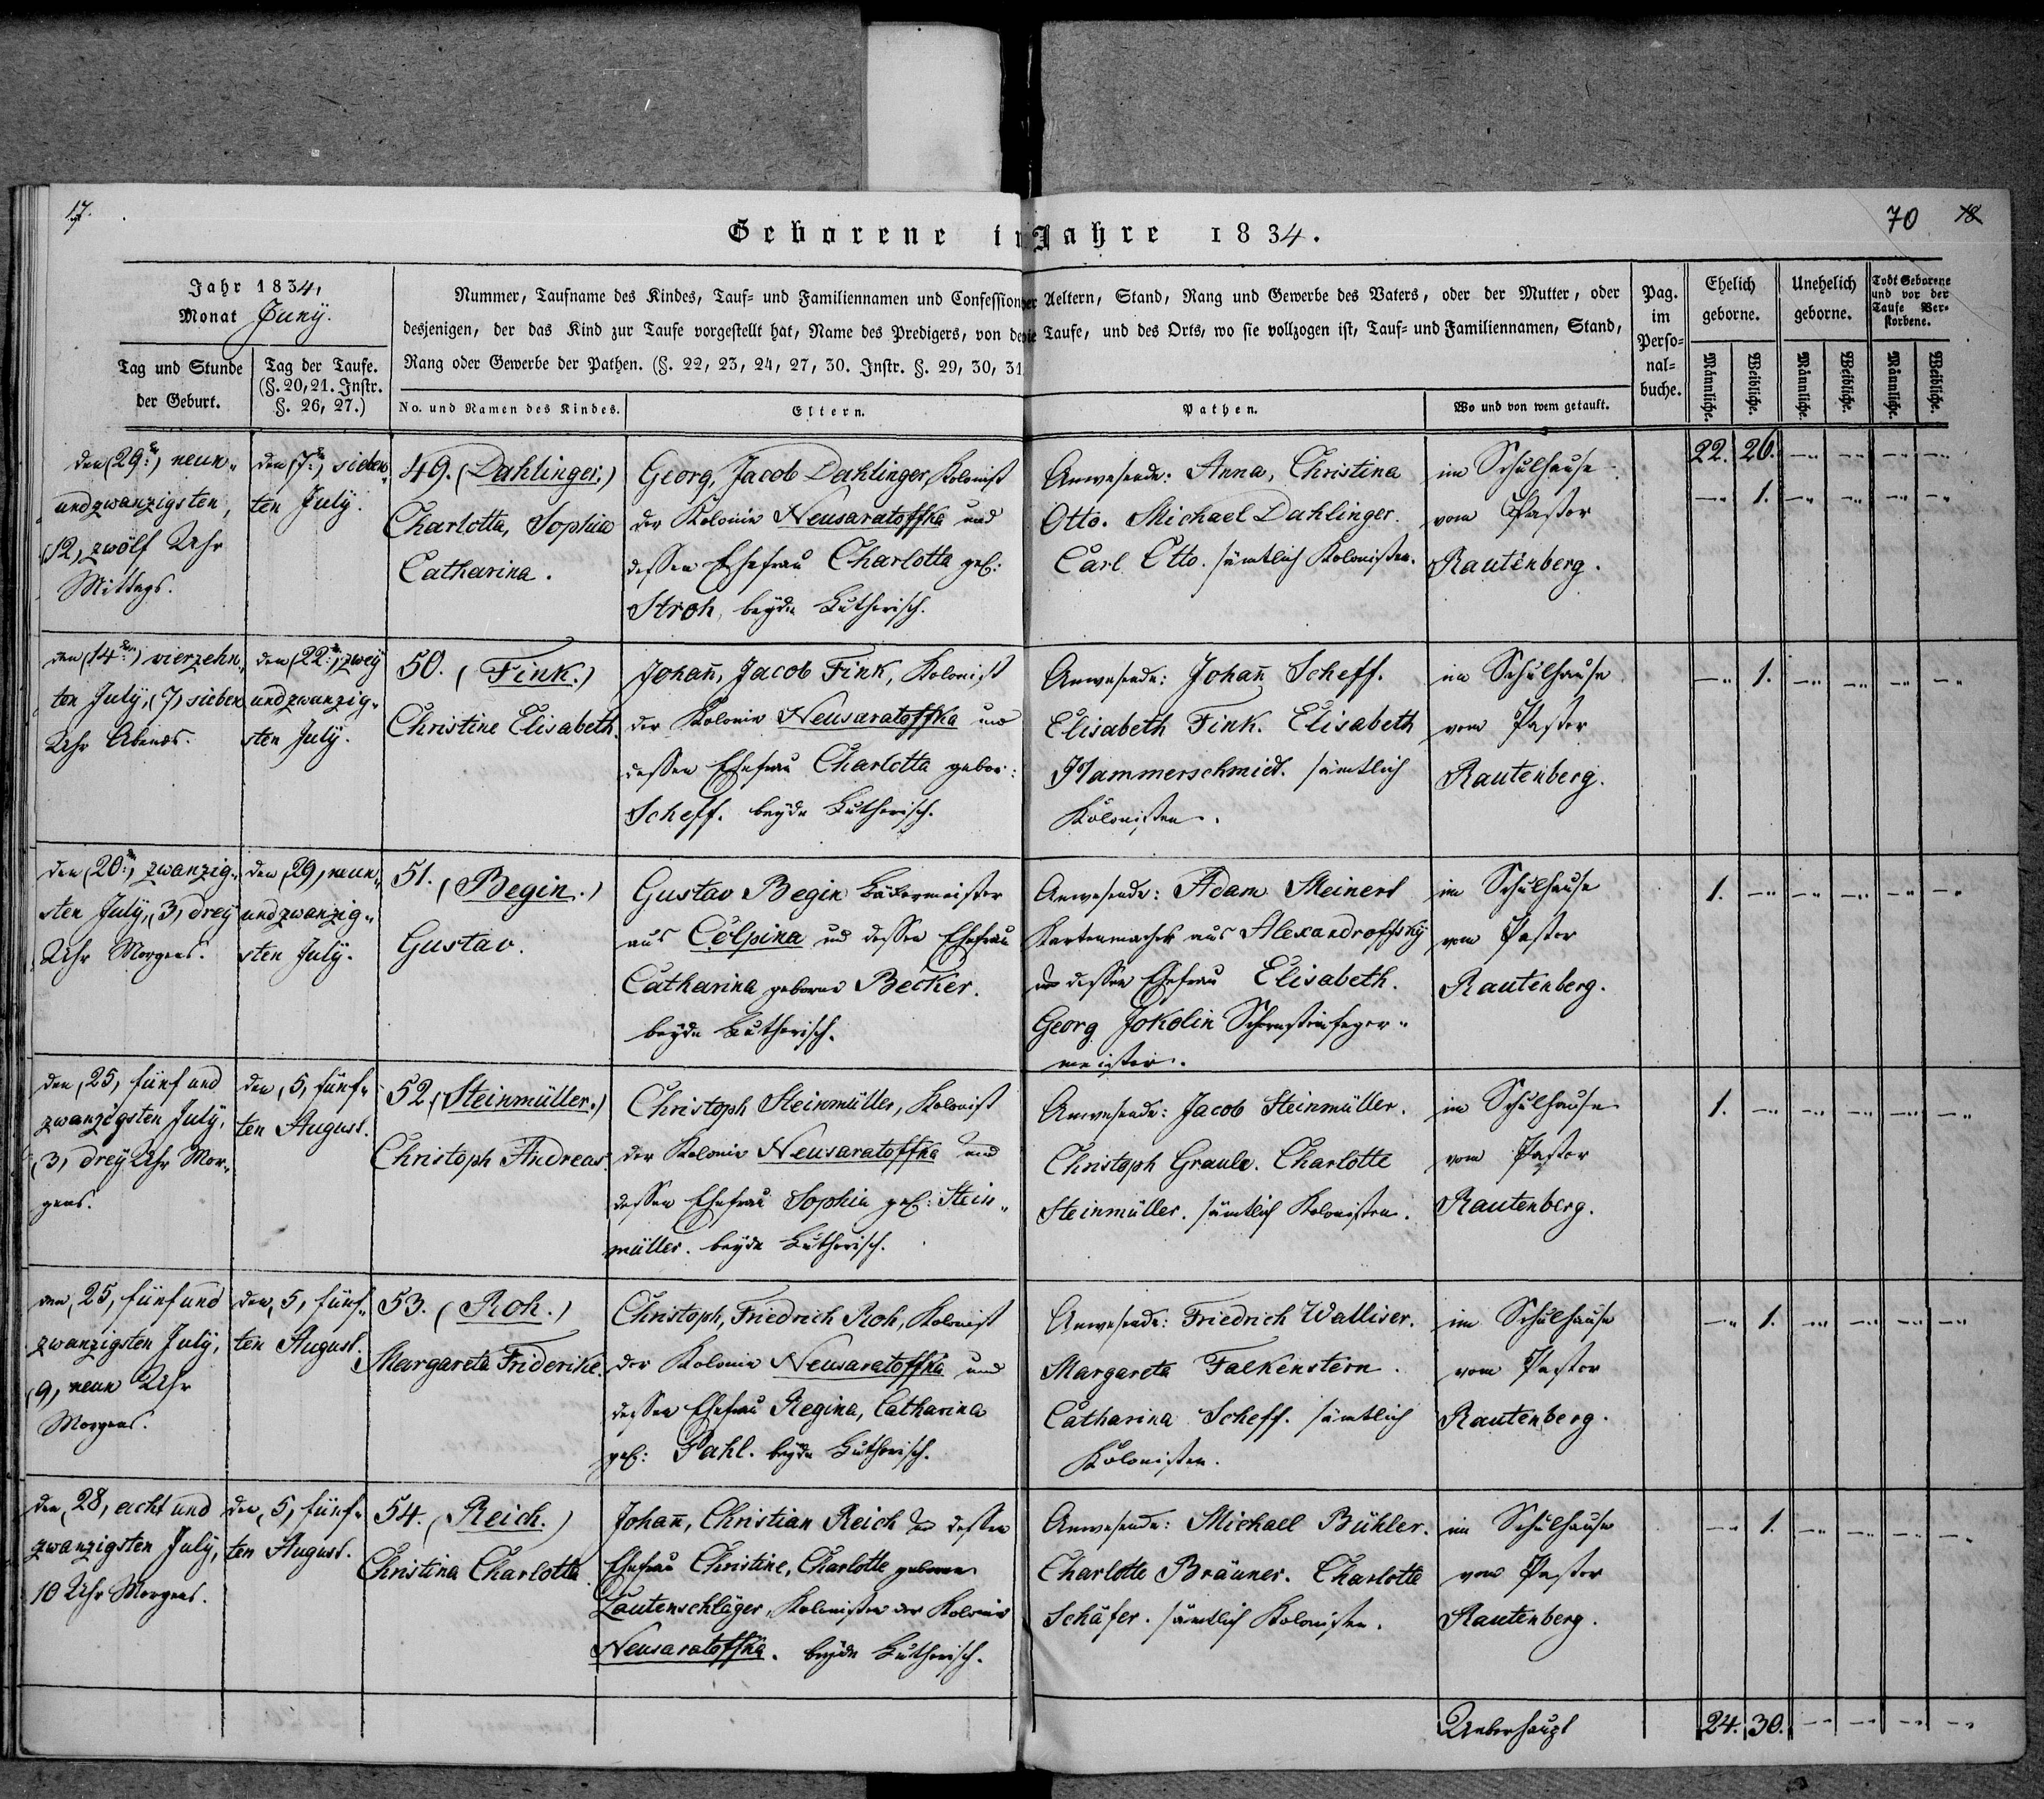 17.
70 18
Geborene im Jahre 1834.
Jahr 1834,
Monat Juny.
Tag und Stunde
der Geburt.
Tag der Taufe.
(§. 20, 21. Instr.
§. 26, 27.)
Nummer, Taufname des Kindes, Tauf- und Familiennamen und Confession der Aeltern, Stand, Rang und Gewerbe des Vaters, oder der Mutter, oder
desjenigen, der das Kind zur Taufe vorgestellt hat, Name des Predigers, von dem die Taufe, und des Orts, wo sie vollzogen ist, Tauf- und Familiennamen, Stand,
Rang oder Gewerbe der Pathen. (§. 22, 23, 24, 27, 30. Instr. §. 29, 30, 31
No. und Namen des Kindes.
Eltern.
Pathen.
Wo und von wem getauft.
Pag.
im
Perso-
nal-
buche.
Ehelich
geborne.
Unehelich
geborne.
Todt Geborene
und vor der
Taufe Ver-
storbene.
Männliche.
Weibliche.
Männliche.
Weibliche.
Männliche.
Weibliche.
den (29.ten) neun-
undzwanzigsten,
(12) zwölf Uhr
Mittags.
den (7.ten) sieben-
ten July.
49. (Dahlinger.)
Charlotta, Sophia
Catharina.
Georg, Jacob Dahlinger, Kolonist
der Kolonie Neusaratoffka und
dessen Ehefrau Charlotta geb:
Stroh, beyde Lutherisch.
Anwesende: Anna, Christina
Otto. Michael Dahlinger.
Carl Otto. sämtlich Kolonisten.
im Schulhause
vom Pastor
Rautenberg.
22. 26. -.. -.. -.. -..
-.. 1. -.. -.. -.. -..
den (14.ten) vierzehn-
ten July, (7) sieben
Uhr Abends.
den (22.ten) zwey
undzwanzig-
sten July.
50. (Fink.)
Christine Elisabeth.
Johan̄, Jacob Fink, Kolonist
der Kolonie Neusaratoffka und
dessen Ehefrau Charlotta gebor:
Scheff. beyde Lutherisch.
Anwesende: Johan̄ Scheff.
Elisabeth Fink. Elisabeth
Hammerschmidt. sämtlich
Kolonisten.
im Schulhause
vom Pastor
Rautenberg.
-.. 1. -.. -.. -.. -..
den (20.ten) zwanzig-
sten July, (3) drey
Uhr Morgens.
den (29) neun-
undzwanzig-
sten July.
51. (Begin.)
Gustav.
Gustav Begin Bäkermeister
aus Colpina und dessen Ehefrau
Catharina geborne Becker.
beyde Lutherisch.
Anwesende: Adam Meinert
Kartenmacher aus Alexandroffsky
und dessen Ehefrau Elisabeth.
Georg Jokolin Schornsteinfeger-
meister.
im Schulhause
vom Pastor
Rautenberg.
1. -.. -.. -.. -.. -..
den (25) fünf und
zwanzigsten July,
(3) drey Uhr Mor-
gens.
den (5) fünf-
ten August.
52. (Steinmüller.)
Christoph Andreas
Christoph Steinmüller, Kolonist
der Kolonie Neusaratoffka und
dessen Ehefrau Sophia geb: Stein-
müller. beyde Lutherisch.
Anwesende: Jacob Steinmüller.
Christoph Graule. Charlotte
Steinmüller. sämtlich Kolonisten.
im Schulhause
vom Pastor
Rautenberg.
1. -.. -.. -.. -.. -..
den (25) fünf und
zwanzigsten July,
(9) neun Uhr
Morgens.
den (5) fünf-
ten August.
53. (Roh.)
Margareta Friderike.
Christoph, Friedrich Roh, Kolonist
der Kolonie Neusaratoffka und
dessen Ehefrau Regina, Catharina
geb: Pahl. beyde Lutherisch.
Anwesende: Friedrich Walliser.
Margareta Falkenstern.
Catharina Scheff. sämtlich
Kolonisten.
im Schulhause
vom Pastor
Rautenberg.
-.. 1. -.. -.. -.. -..
den (28) acht und
zwanzigsten July,
10 Uhr Morgens.
den (5) fünf-
ten August.
54. (Reich.)
Christina Charlotta
Johan̄, Christian Reich und dessen
Ehefrau Christine, Charlotte geborne
Lautenschläger, Kolonisten der Kolonie
Neusaratoffka. beyde Lutherisch.
Anwesende: Michael Bühler.
Charlotte Bräuner. Charlotte
Schäfer. sämtlich Kolonisten.
im Schulhause
vom Pastor
Rautenberg.
-.. 1. -.. -.. -.. -..
Ueberhaupt
24. 30. -.. -.. -.. -..